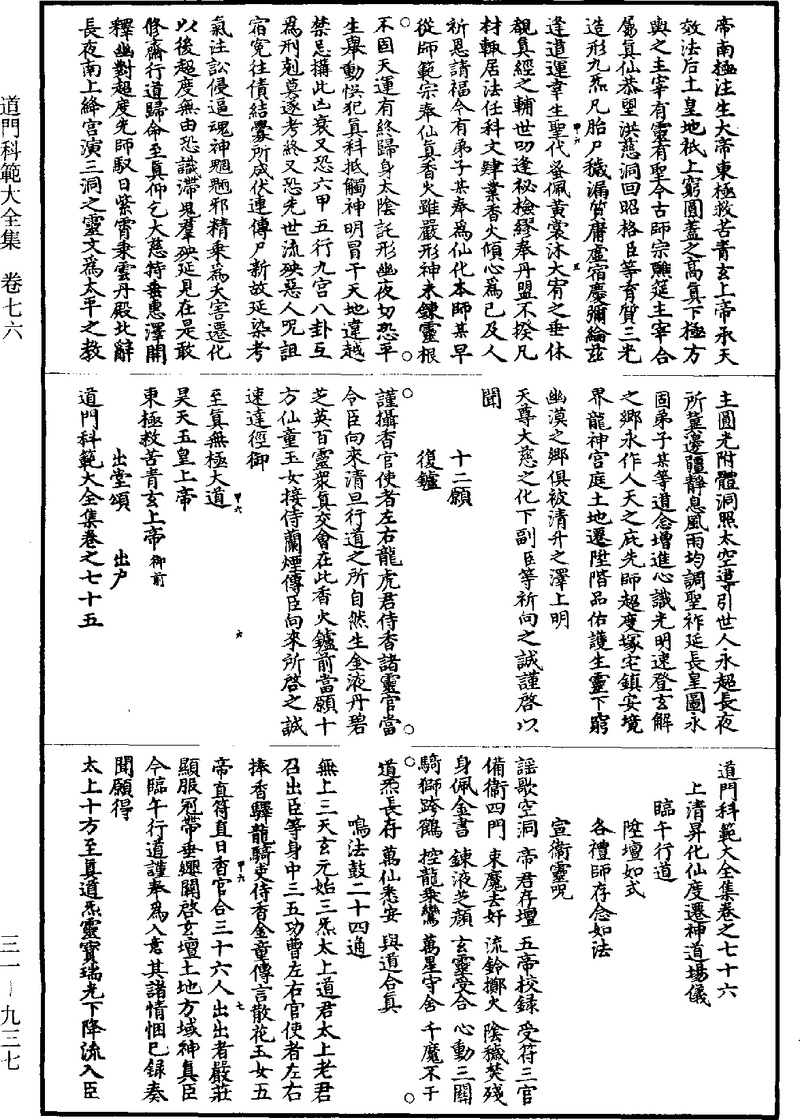 帝南極注生大帝東極救苦青玄上帝承天
效法后土皇地祇上窮圓蓋之高真下極方
輿之主宰有靈有聖今古師宗驂筵主宰合
屬真仙恭望洪慈洞回昭格臣等育質三光
造形九炁凡胎尸穢漏質庸虛宿慶彌綸茲
逢道運幸生聖代蚤佩黃裳沐大宥之垂休
覩真經之輔世叨逢秘檢繆奉丹盟不揆凡
材輒居法任科文肄業香火傾心為己及人
祈恩請福今有弟子某奉為仙化本師某早
從師範宗奉仙真香火雖嚴形神未鍊靈根
不固天運有終歸身太陰託形幽夜切恐平
生舉動悞犯真科抵觸神明冒干天地違越
禁忌搆此凶衰又恐六甲五行九宮八卦互
為刑剋莫逐考終又恐先世流殃惡人呪詛
宿冤往債結釁所成伏連傳尸新故延染考
氣注訟侵逼魂神魍魎邪精乘為夭害遷化
以後超度無由恐識滯鬼羣殃延見在是敢
修齋行道歸命至真仰乞大慈特垂恩澤開
釋幽對超度先師馭日紫霄乘雲丹殿北辭
長夜南上絳宮演三洞之靈文為太平之教
主圓光附體洞照太空導引世人永超長夜
所冀邊疆靜息風雨均調聖祚延長皇圖永
固弟子某等道念增進心識光明速登玄解
之鄉永作人天之庇先師超度塚宅鎮安境
界龍神宮庭土地遷陞階品佑護生靈下窮
幽漠之鄉俱被清升之澤上明
天尊大慈之化下副臣等祈向之誠謹啓以
聞
十二願
復鑪
謹攝香官使者左右龍虎君侍香諸靈官當
令臣向來清旦行道之所自然生金液丹碧
芝英百靈衆真交會在此香火鑪前當願十
方仙童玉女接侍蘭煙傳臣向來所啓之誠
速達徑御
至真無極大道
昊天玉皇上帝
東極救苦青玄上帝 御前
出堂頌 出户
道門科範大全集卷之七十五
道門科範大全集卷之七十六
上清昇化仙度遷神道場儀
臨午行道
陞壇如式
各禮師存念如法
宣衞靈呪
謡歌空洞 帝君存壇 五帝校録 受符三官
備衞四門 束魔去奸 流鈴擲火 陰穢焚殘
身佩金書 鍊液芝顔 玄靈受合 心動三關
騎獅跨鶴 控龍乘鸞 萬星守舍 千魔不干
道炁長存 萬仙悉安 與道合真
鳴法鼓二十四通
無上三天玄元始三炁太上道君太上老君
召出臣等身中三五功曹左右官使者左右
捧香驛龍騎吏侍香金童傳言散花玉女五
帝直符直日香官合三十六人出出者嚴莊
顯服冠帶垂纓關啓玄壇土地方域神真臣
今臨午行道謹奉為入意其諸情悃已録奏
聞願得
太上十方至真道炁靈寶瑞光下降流入臣
道門科範大全集 卷七六
三一－九三七
甲六
五
甲六
六
甲六
七